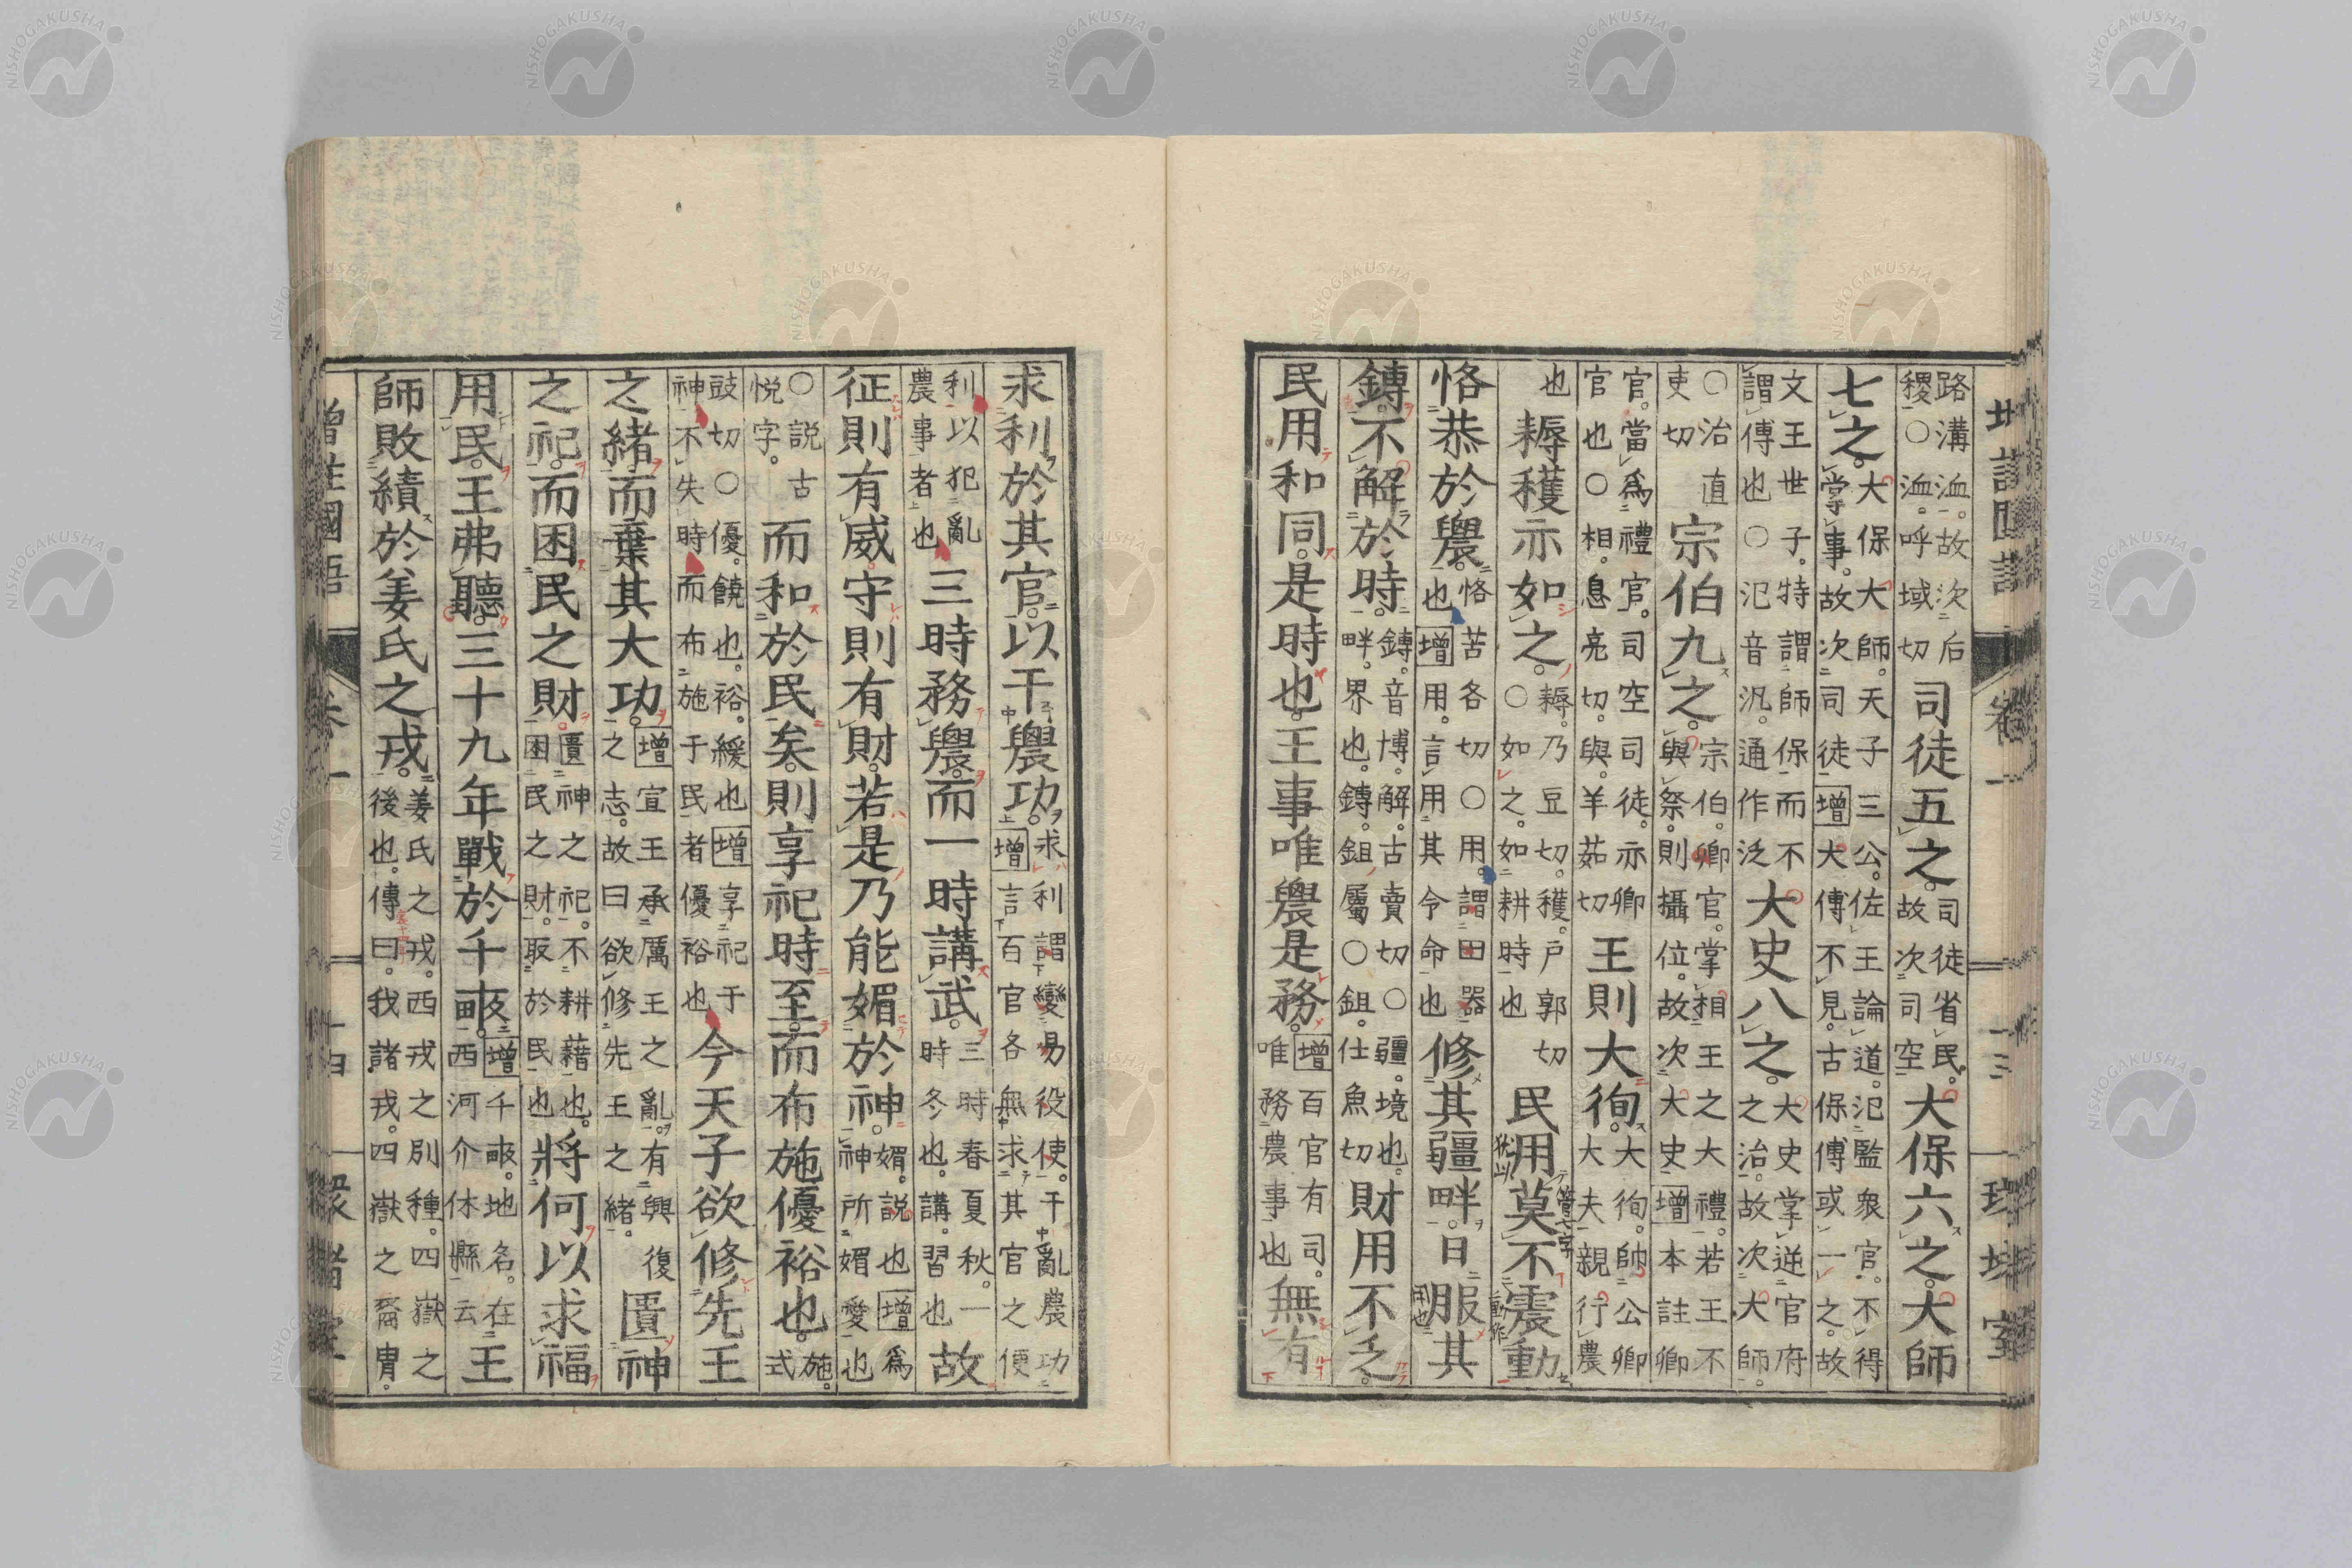 路溝洫。故次后稷○洫。呼域切司徒五之。司徒省民。故次司空大保六之。大師
七之。大保大師。天子三公。佐王論道。氾監衆官。不得掌事。故次司徒增大傅不見。古保傅或一之。故
文王世子。特謂師保而不謂傅也○氾音汎。通作泛大史八之。大史掌逆官府之治。故次大師。
○治直吏切宗伯九之。宗伯。卿官。掌相王之大禮。若王不與祭。則攝位。故次大史增本註卿
官。當爲禮官。司空司徒。亦卿官也○相。息亮切。與。羊茹切王則大徇。大徇。帥公卿大夫親行農
也耨穫亦如之。耨。乃豆切。穫。戶郭切○如之。如耕時也民用莫不震動
恪恭於農。恪苦各切○用。謂田器也增用。言用其令命也修其疆畔。日服其
鎛。不解於時。鎛。音博。解。古賣切○疆。境也。畔。界也。鎛。鉏屬○鉏。仕魚切財用不乏。
民用和同。是時也。王事唯農是務。增百官有司。唯務農事也無有
求利於其官。以干農功。求利謂變易役使。干亂農功增言百官各無求其官之便
利以犯亂農事者也三時務農。而一時講武。三時春夏秋。一時冬也。講。習也故
征則有威。守則有財。若是乃能媚於神。媚。説也增爲神所媚愛也
○説古悦字。而和於民矣。則享祀時至。而布施優裕也。施。式
豉切○優。饒也。裕。緩也增享祀于神不失時而布施于民者優裕也今天子欲修先王
之緒。而棄其大功。增宣王承厲王之亂。有興復之志。故曰欲修先王之緒。匱神
之祀。而困民之財。匱神之祀。不耕藉也。困民之財。取於民也將何以求福
用民。王弗聽。三十九年。戰於千畮。增千畮。地名。在西河介休縣云王
師敗績於姜氏之戎。姜氏之戎。西戎之別種。四嶽之後也。傳曰。我諸戎。四嶽之裔冑。